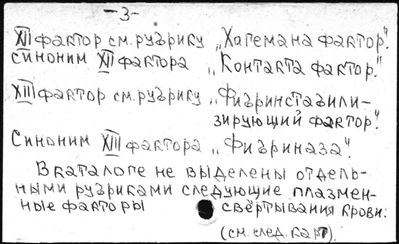 -3-
XII фактор см. рубрику „Хагемана фактор".
синоним XII фактора „Контакта фактор".
XIII фактор см. рубрику „Фибринстабили-
зирующий фактор".
Синоним XIII фактора „Фибриназа".
В каталоге не выделены отдель-
ными рубриками следующие плазмен-
ные факторы свёртывания крови:
(см. след. карт).